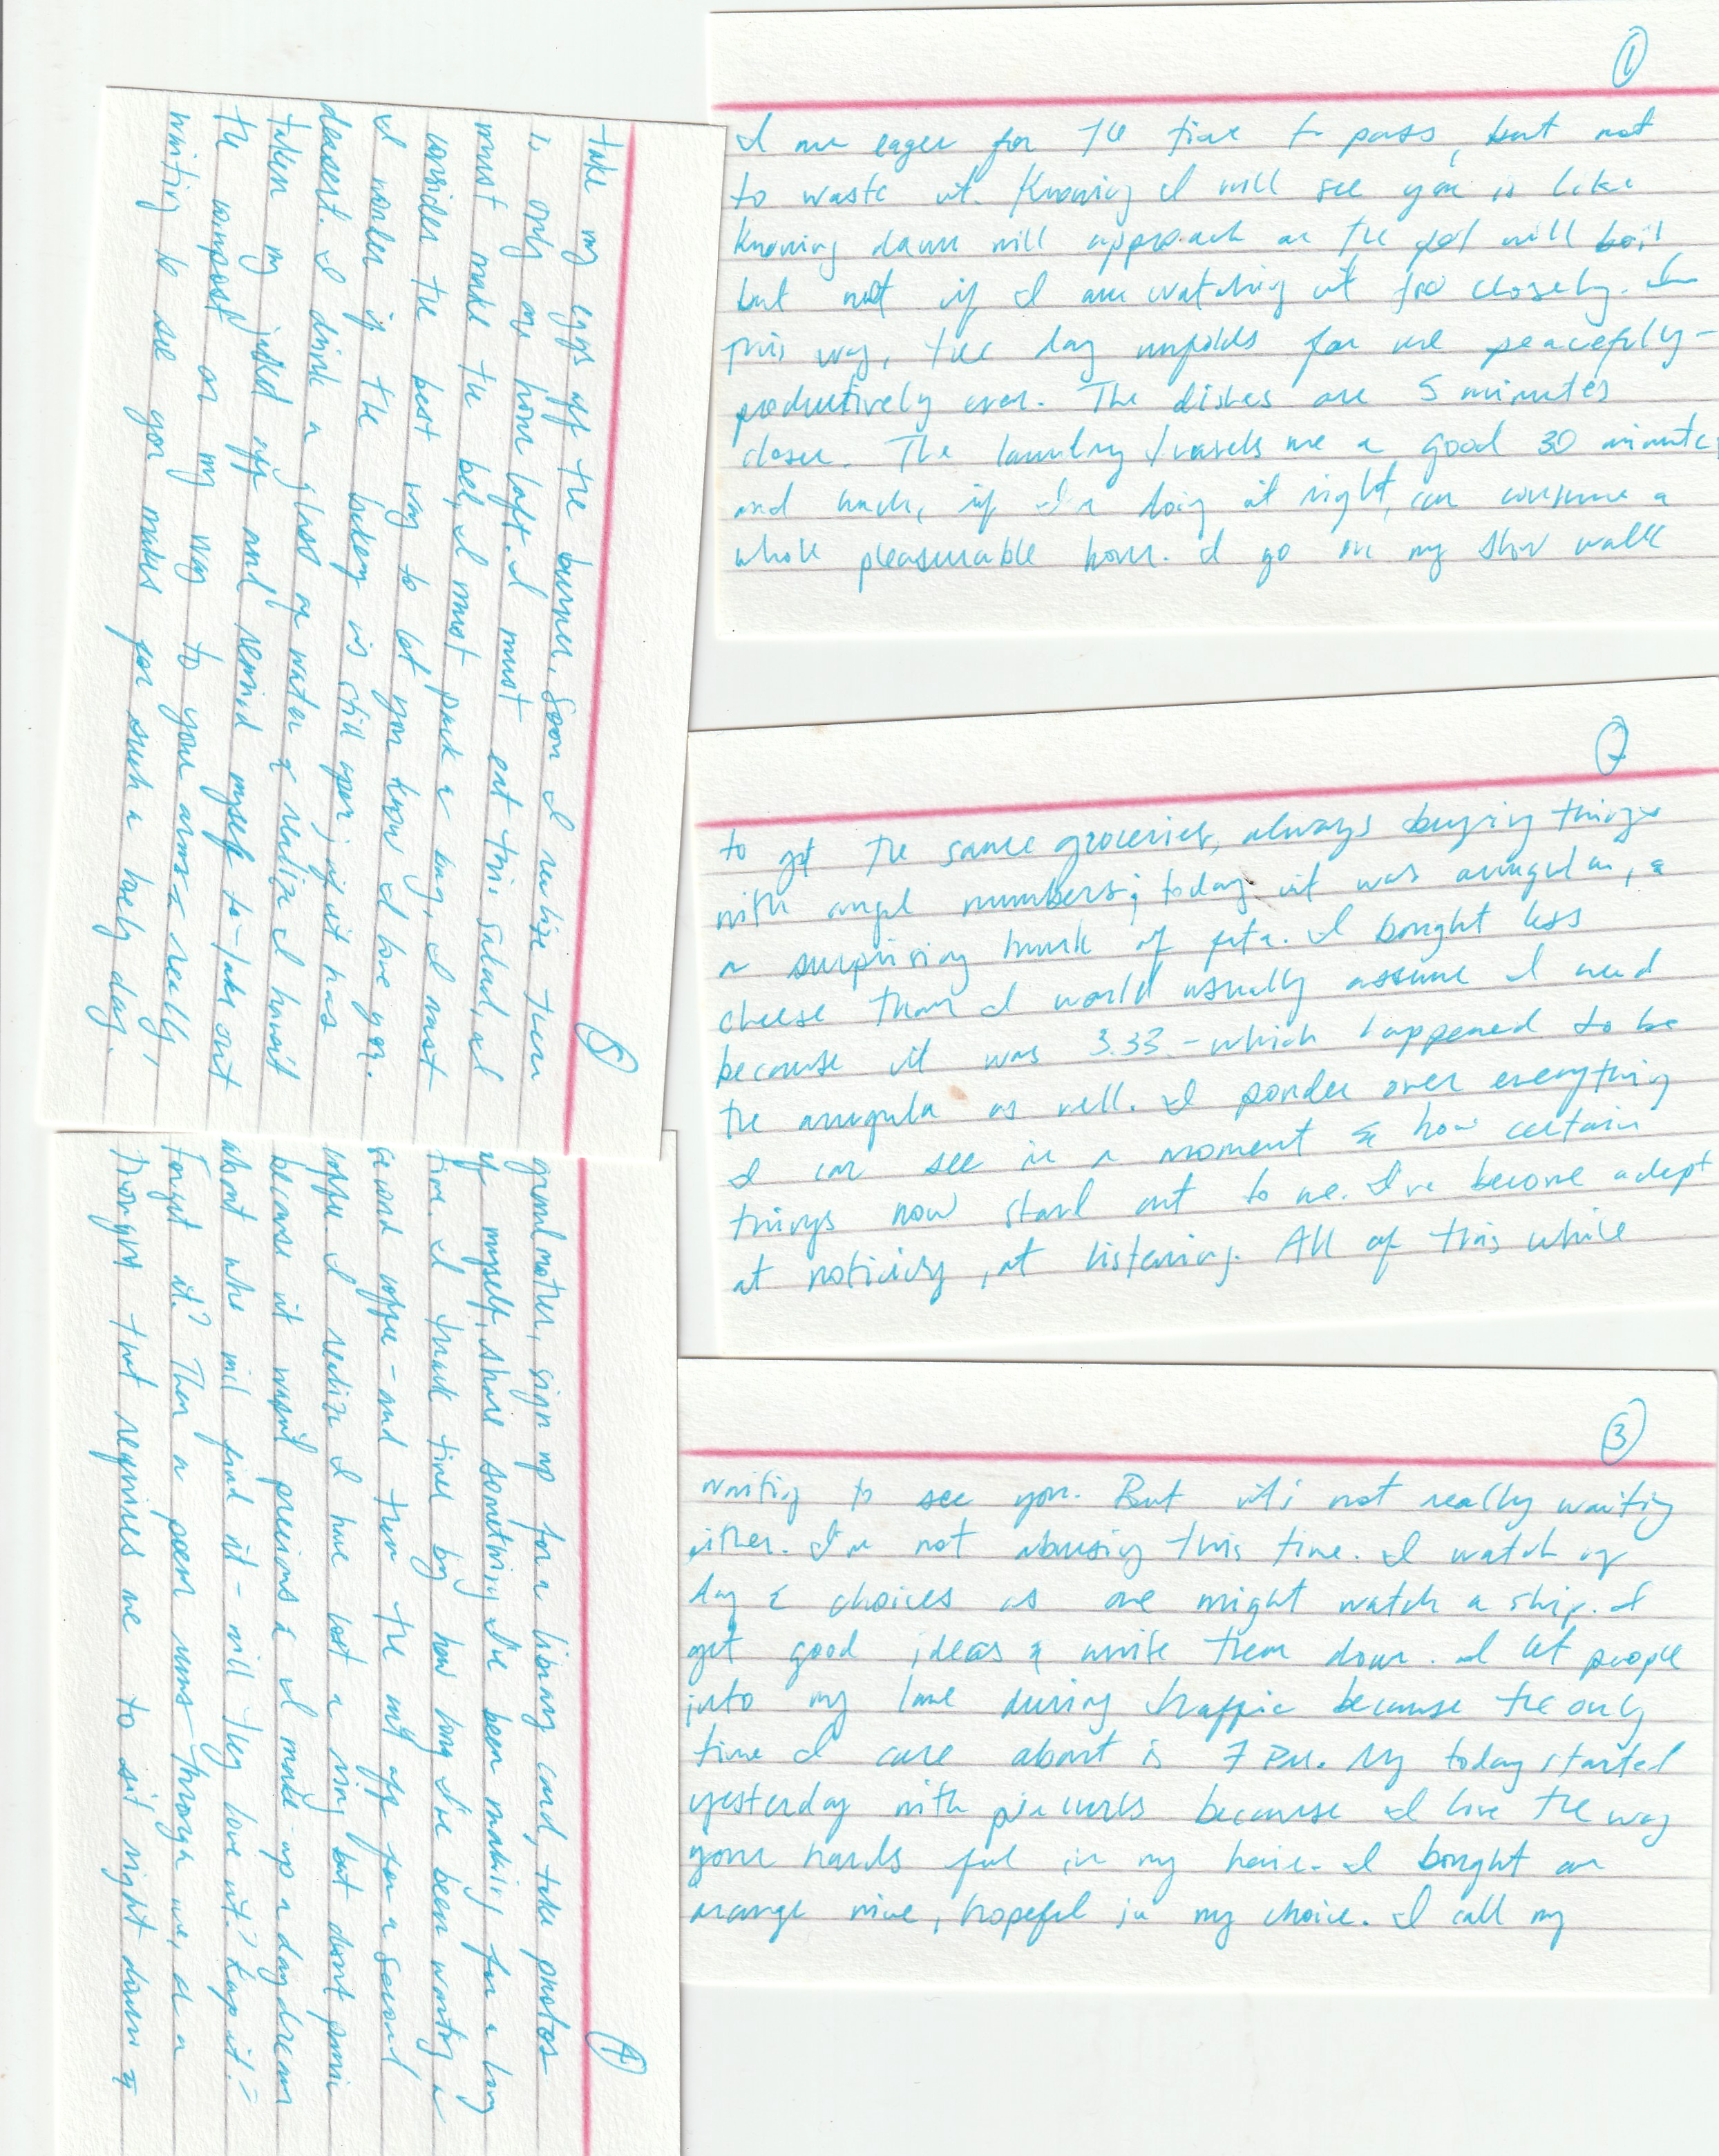 ①
I am eager for the time to pass, but not
to waste it. Knowing I will see you is like
knowing dawn will approach or the pot will boil
but not if I am watching it too closely. In
this way, the day unfolds for me peacefully -
productively even. The dishes are 5 minutes
closer. The laundry travels me a good 30 minutes
and lunch, if I'm doing it right, can consume a
whole pleasurable hour. I go on my slow walk
②
to get the same groceries, always buying things
with angel numbers; today it was arugula, &
a surprising hunk of feta. I bought less
cheese than I would usually assume I need
because it was 3.33 - which happened to be
the arugula as well. I ponder over everything
I can see in a moment & how certain
things now stand out to me. I've become adept
at noticing, at listening. All of this while
③
waiting to see you. But it's not really waiting
either. I'm not abusing this time. I watch my
day & choices as one might watch a ship. I
get good ideas & write them down. I let people
into my lane during traffic because the only
time I care about is 7 PM. My today started
yesterday with pin curls because I love the way
your hands feel in my hair. I bought an
orange wine, hopeful in my choice. I call my
④
grandmother, sign up for a library card, take photos
of myself, share something I've been making for a long
time. I track time by how long I've been wanting a
second coffee - and then the nit off for a second
coffee I realize I have lost a ring but don't panic
because it wasn't precious & I made up a daydream
about who will find it - will they love it? Keep it? =
Forget it? Then a poem runs through me, or a
thought that requires me to sit right down &
⑤
take my eggs off the burner. Soon I realize there
is only an hour left. I must eat this salad, I
must make the bed, I must pack a bag, I must
consider the best way to let you know I love you.
I wonder if the bakery is still open; if it has
dessert. I drink a glass of water & realize I haven't
taken my jacket off and remind myself to take out
the compost on my way to your arms - really,
waiting to see you makes for such a lovely day.